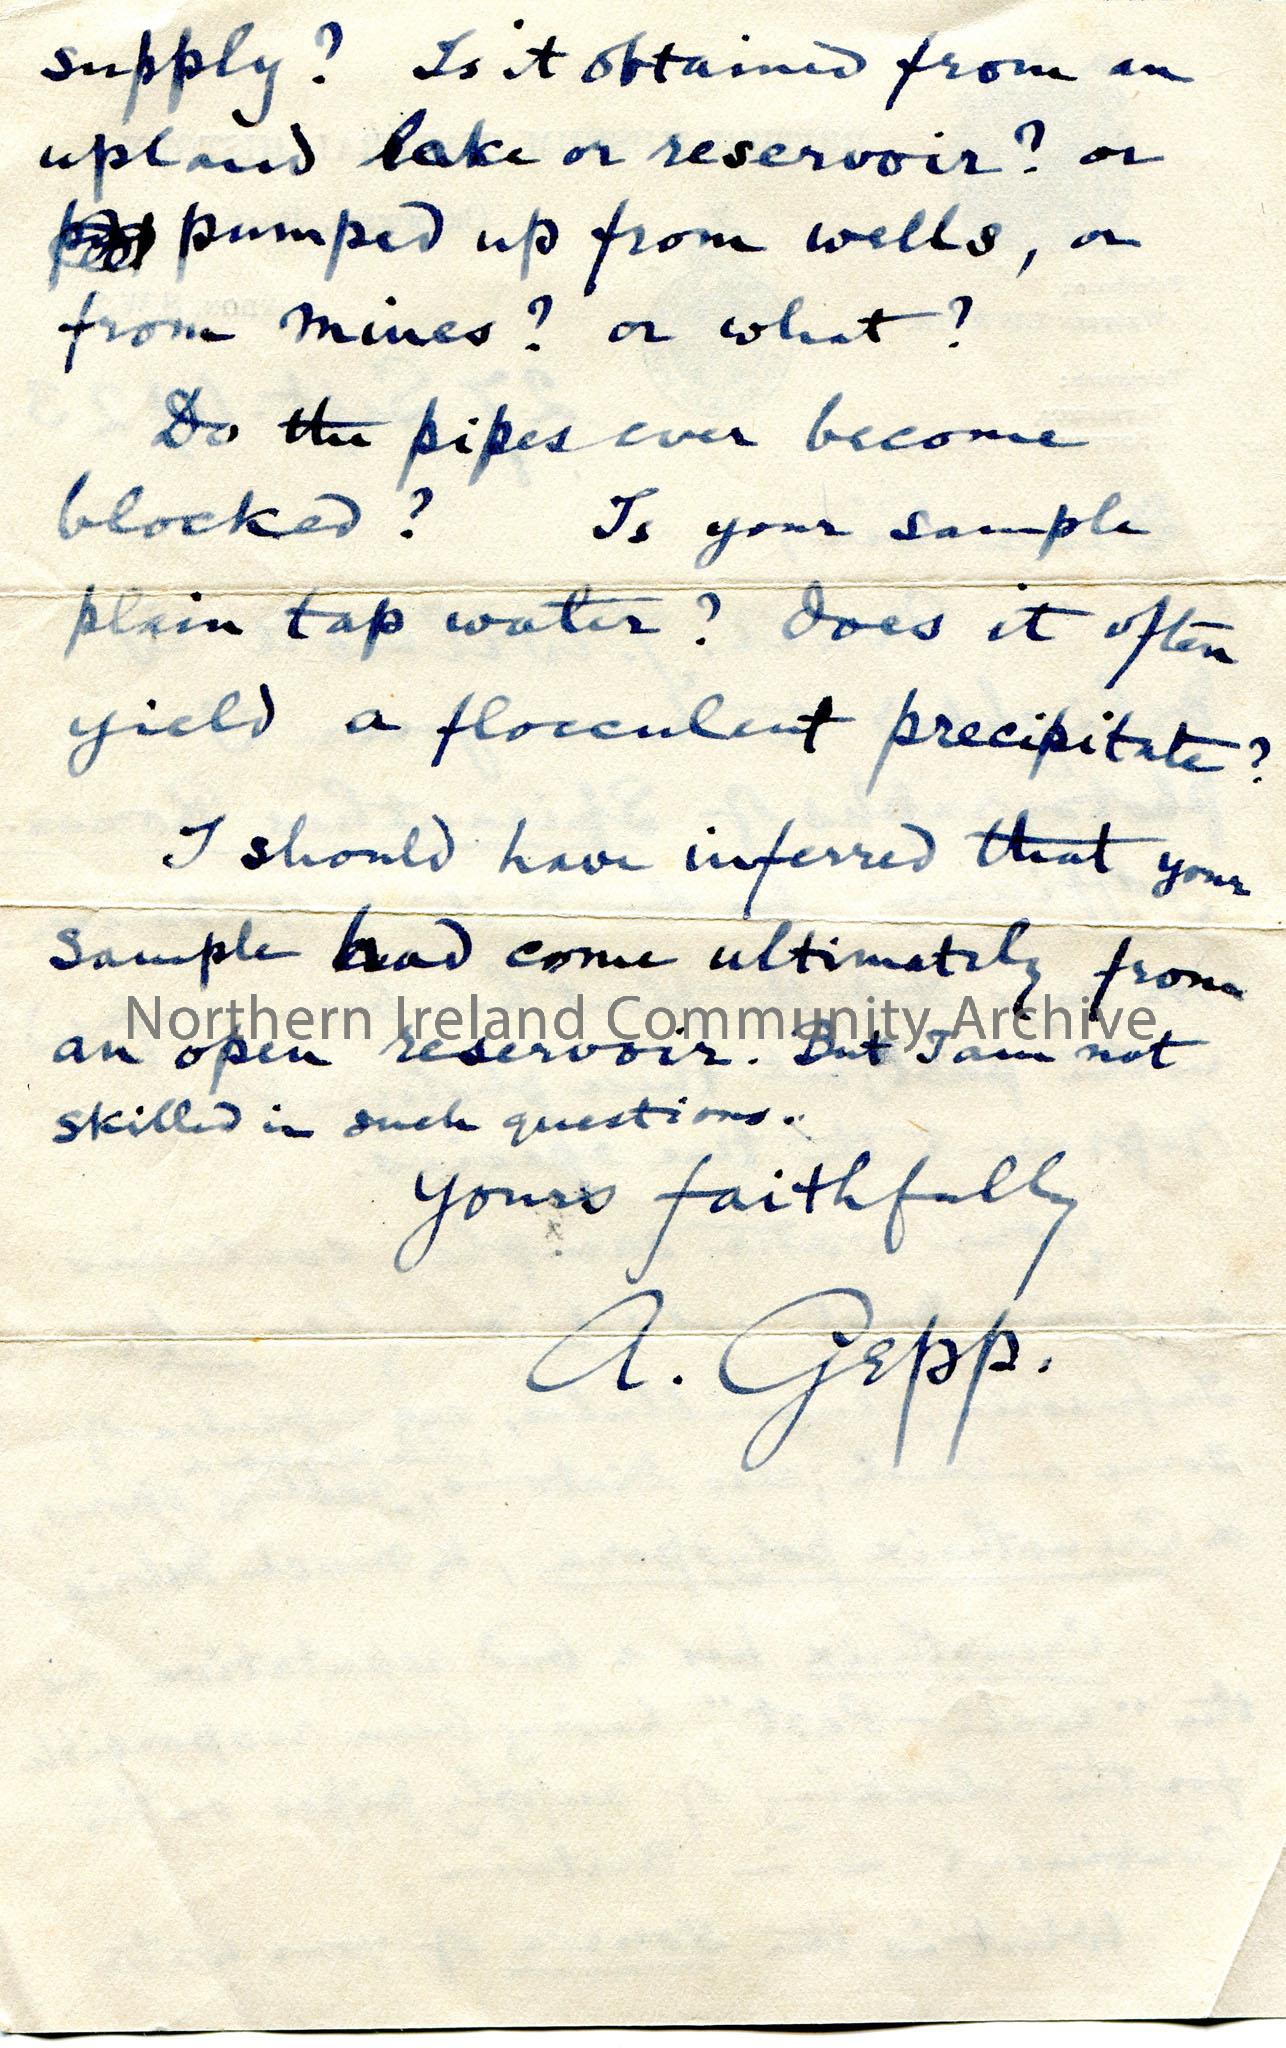 supply? Is it obtained from an
upland lake or reservoir? or
pumped up from wells, or
from mines? or what?
Do the pipes ever become
blocked? Is your sample
plain tap water? Does it often
yield a flocculent precipitate?
I should have inferred that your
sample had come ultimately from
Northern Ireland Community Archive
an open reservoir. But I am not
skilled in such questions.
Yours faithfully
A. Gepp.